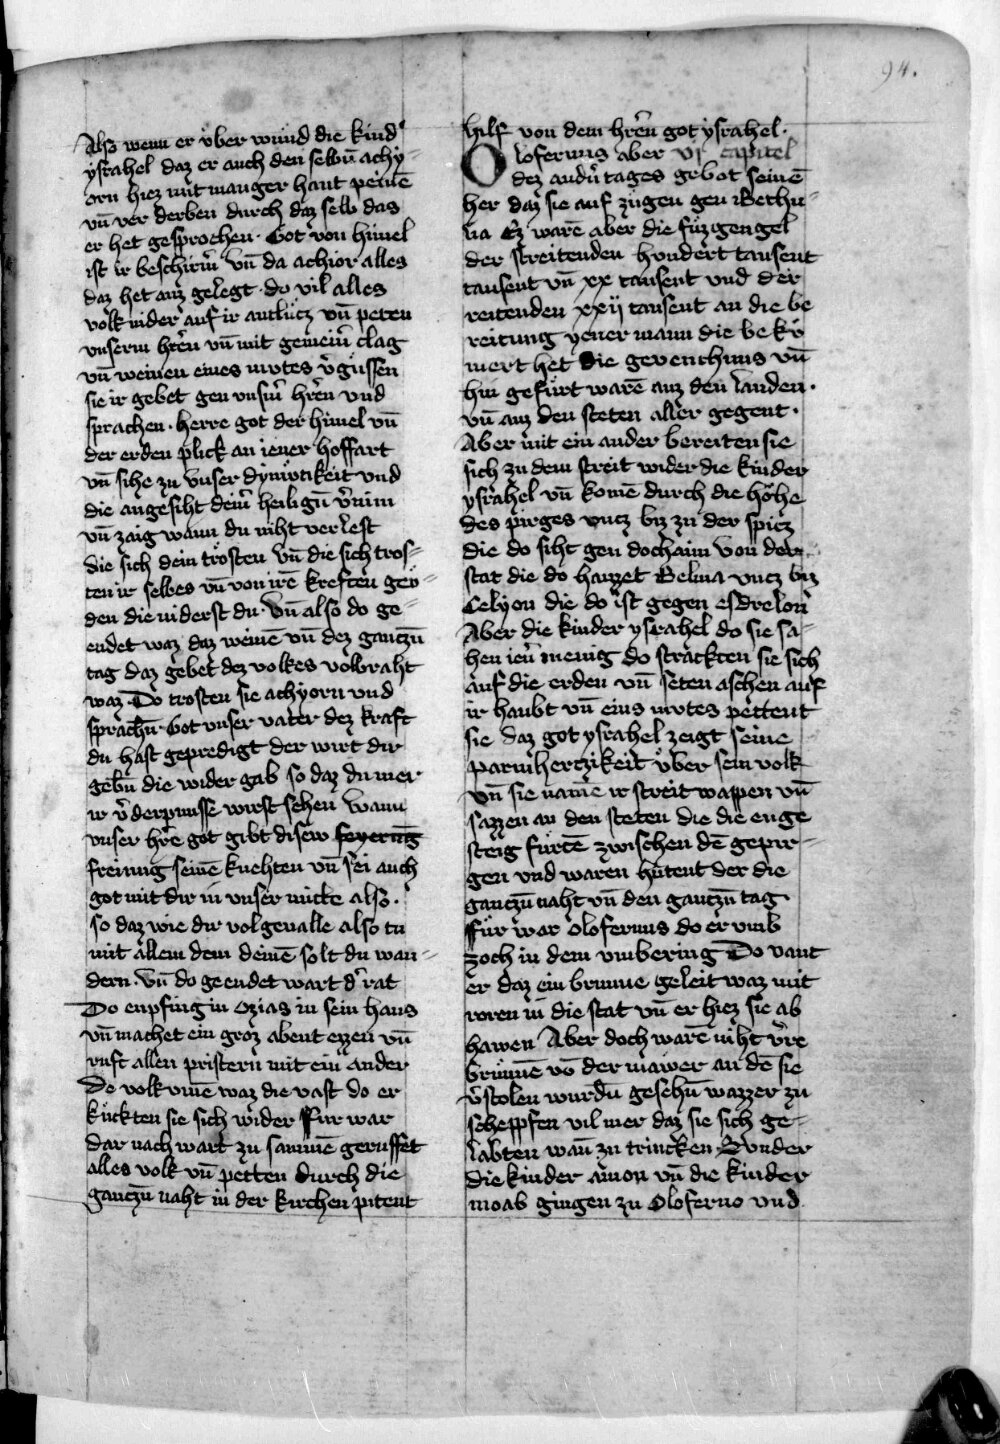 94.
Also wenn er über wünd die kind
ysrahel daz er auch den selbn̄ achy-
orn hiez mit manger hant peinē
vn̄ ver derben durch daz selb das
er het gesprochen. Got von himel
ist ir beschirm̄ vn̄ da achior alles
daz het auz gelegt. do vil alles
volk nider auf ir antlücz vn̄ peten
vnserm hr̄en vn̄ mit gemeim̄ clag
vn̄ weinen eines mutes v̄gussen
sie ir gebet gen vnsm̄ hr̄en vnd
sprachen. herre got der himel vn̄
der erden plick an iener hoffart
vn̄ sihe zu vnser dymütikeit vnd
die angesiht deim̄ heilign̄ v̄nim
vn̄ zaig wann du niht verlest
die sich dein trösten vn̄ die sich tros-
ten ir selbes vn̄ von irē kreften geü-
den die niderst du. vn̄ also do ge-
endet waz daz weinē vn̄ dez ganczn̄
tag daz gebet dez volkes volbraht
waz. Do trosten sie achyorn vnd
sprachn̄. Got vnser vater dez kraft
du hast gepredigt der wirt dir
gebn̄ die wider gab so daz du mer
ir v̄derpnusse wirst sehen Wann
vnser hr̄e got gibt disew feyerung
freiung seinē knehten vn̄ sei auch
got mit dir in vnser mitte also.
so daz wie dir volgevalle also tu
mit allem dem deinē solt du wan-
dern. vn̄ do geendet wart d̄ rat
Do enpfing in ozias in sein haus
vn̄ machet ein groz abent ezzen vn̄
ruft allen pristern mit ein ander
Do volk vmē waz die vast do er
kückten sie sich wider Fur war
dar nach wart zu sammē geruffet
alles volk vn̄ petten durch die
ganczn̄ naht in der kirchen pitent
hilf von dem hr̄en got ysrahel.
Olofernus aber vi capitel
dez andn̄ tages gebot seinē
her daz sie auf zügen gen Bethu-
lia Ez warē aber die fuzgengel
der streitenden hundert tausent
tausent vn̄ xx tausent vnd der
reitenden xxij tausent an die be
reitung yener mann die be kü
mert het die gevencknus vn̄
hin gefürt warē auz den landen.
vn̄ auz den steten aller gegent.
Aber mit ein ander bereiten sie
sich zu dem streit wider die kinder
ysrahel vn̄ komē durch die höhe
des pirges vncz biz zu der spicz
die do siht gen dochaim von der
stat die do haizzet Belma vncz biz
Celyon die do ist gegen esdrelon
Aber die kinder ysrahel do sie sa-
hen ien̄ menig do strackten sie sich
auf die erden vn̄ seten aschen auf
ir haubt vn̄ eins mutes pettent
sie daz got ysrahel zeigt seine
parmhertzikeit über sein volk
vn̄ sie namē ir streit wappen vn̄
sazzen an den steten die die enge
steig fürtē zwischen dē gepir-
gen vnd waren hütent der die
ganczn̄ naht vn̄ den ganczn̄ tag.
Für war olofernus do er vmb
zoch in dem vmbering Do vant
er daz ein brunne geleit waz mit
roren in die stat vn̄ er hiez sie ab
hawen Aber doch warē niht v̄re
brünnē vō der mawer an dē sie
v̄stolen wurdn̄ gesehn̄ wazzer zu
scheppfen vil mer daz sie sich ge-
labten wan̄ zu trincken. Sunder
die kinder amon vn̄ die kinder
moab gingen zu Oloferno vnd